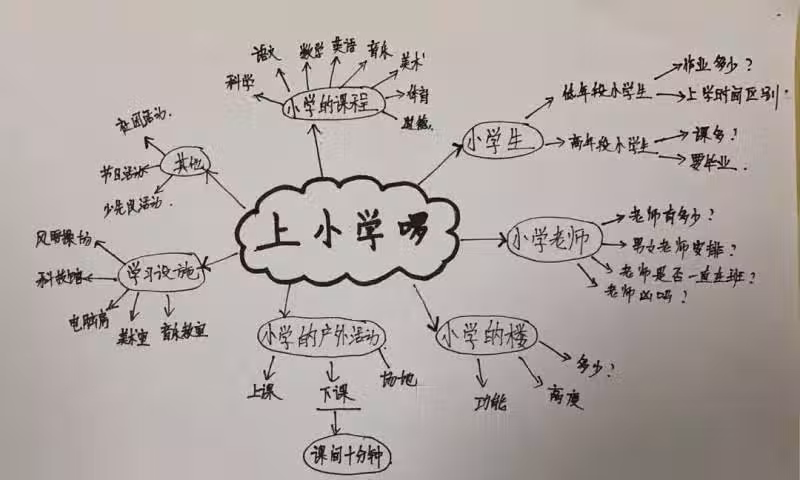 上小学啰
小学的课程
科学
语文
数学
英语
音乐
美术
体育
道德
小学生
低年段小学生
作业多少？
上学时间区别？
高年段小学生
课多？
要毕业
小学老师
老师有多少？
男女老师安排？
老师是否一直在班？
老师凶吗？
小学的楼
多少？
高度
功能
小学的户外活动
上课
下课
场地
课间十分钟
学习设施
风雨操场
科技馆
电脑房
美术室
音乐教室
其他
社团活动
节日活动
少先队活动